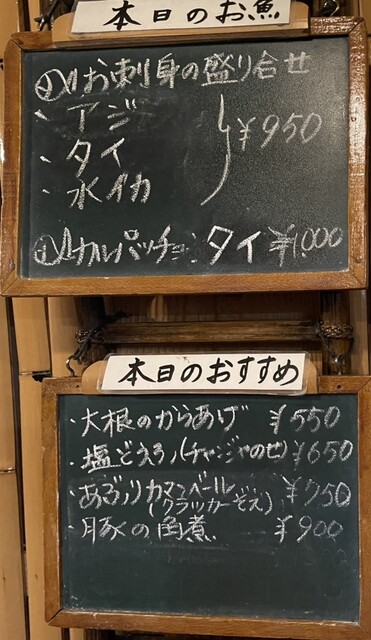 本日のお魚
お刺身の盛り合せ
・アジ
・タイ
・水イカ
¥950
カルパッチョ:タイ ¥1,000
本日のおすすめ
・大根のからあげ ¥550
・塩どうふ(チャンジャのせ) ¥650
・あぶりカマンベール ¥750
(クラッカーぞえ)
・豚の角煮 ¥900